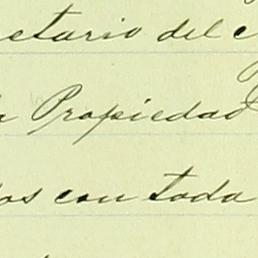 etario del
Propiedad
os con toda